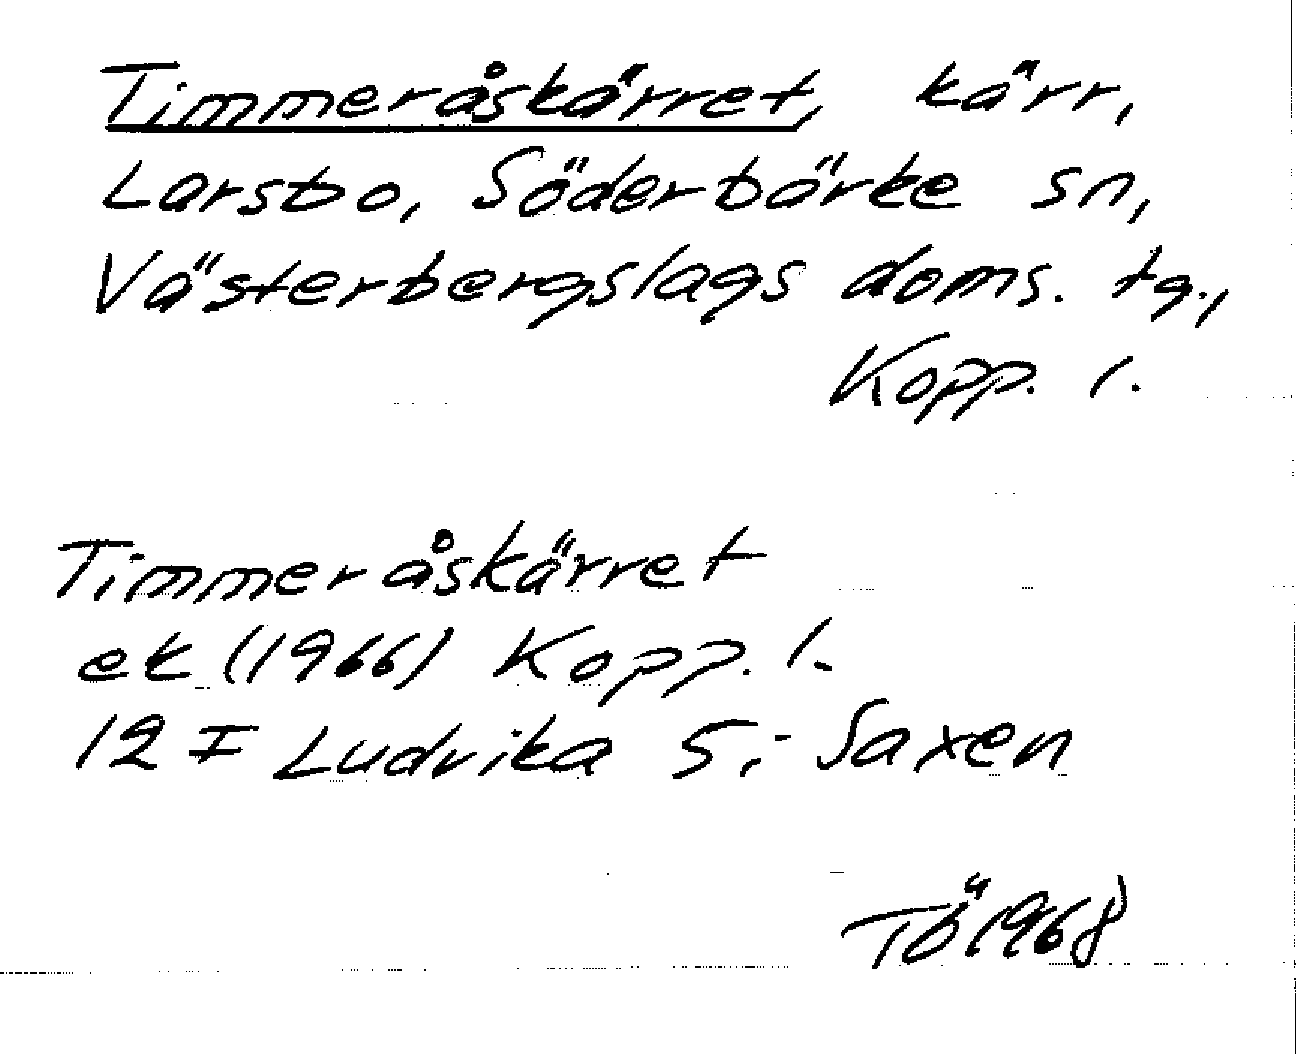 Timmeråskärret, kärr,
Larsbo, Söderbärke sn,
Västerbergslags doms. tg.,
Kopp. l.
Timmeråskärret
ek (1966) Kopp. l.
12 F Ludvika S:- Saxen
TÖ 1968